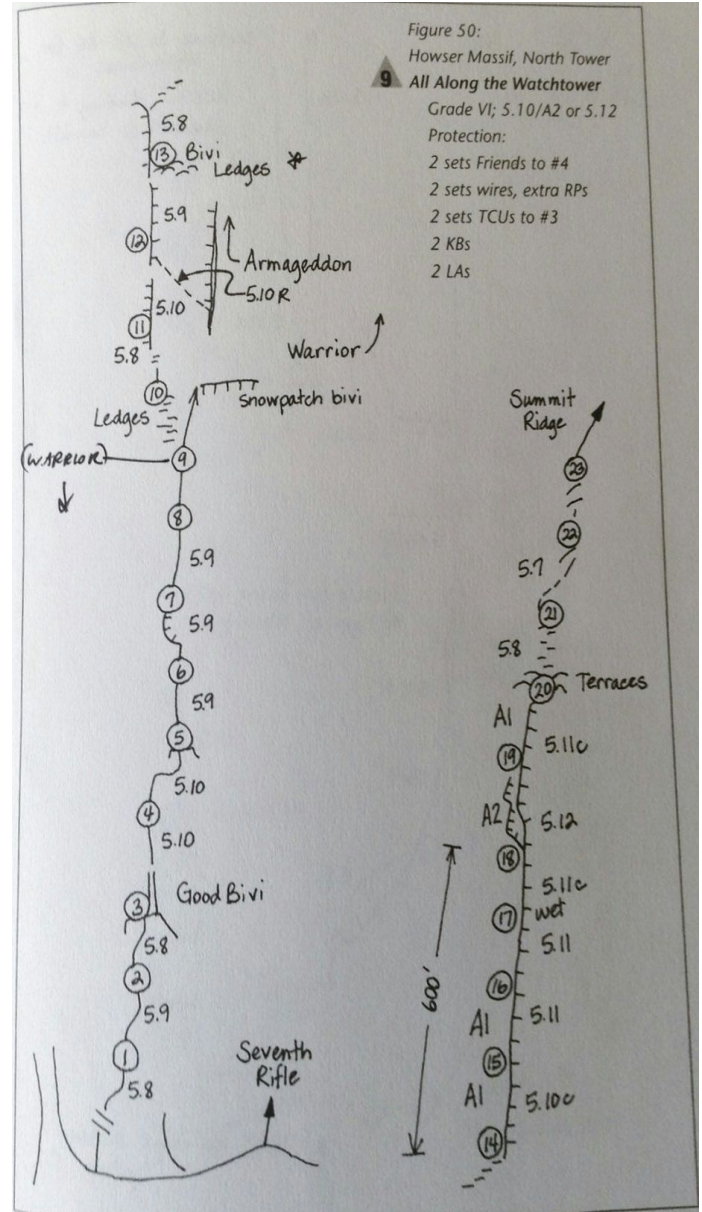 Figure 50:
Howser Massif, North Tower
9 All Along the Watchtower
Grade VI; 5.10/A2 or 5.12
Protection:
2 sets Friends to #4
2 sets wires, extra RPs
2 sets TCUs to #3
2 KBs
2 LAs
5.8
13 Bivi
Ledges *
5.9
12
Armageddon
5.10 R
5.10
11
5.8
Warrior
10
Snowpatch bivi
Ledges
(WARRIOR)
9
8
5.9
7
5.9
6
5.9
5
5.10
4
5.10
Good Bivi
3
5.8
2
5.9
1
5.8
Seventh
Rifle
Summit
Ridge
23
22
5.7
21
5.8
20 Terraces
A1
5.11c
19
A2
5.12
18
5.11c
17 wet
5.11
16
600'
5.11
A1
15
A1
5.10c
14